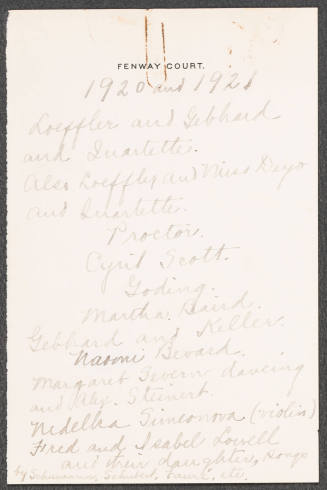 FENWAY COURT.
1920 and 1921
Loeffler and Gebhard
and Quartette.
Also Loeffler and Miss Deyo
and Quartette.
Proctor.
Cyril Scott.
Goding.
Martha Baird.
Gebhard and Keller.
Naomi Bevard.
Margaret Severn dancing
and Alex. Steinert.
Nedelka Simeonova (violin)
Fred and Isabel Lowell
and their daughter, songs
by Schumann, Schubert, Fauré, etc.